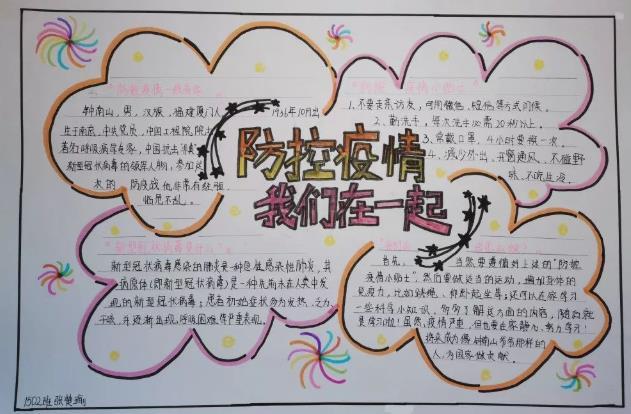 防控疫情
我们在一起
钟南山，男，汉族，福建厦门人，1936年10月出
生于南京，中共党员，中国工程院院士
著名呼吸病学专家，中国抗击非典
新型冠状病毒的领军人物，参加这
大的 防疫战 他非常有担当
临危不乱。
1、不要走亲访友，可用微信、短信等方式问候。
2、勤洗手，每次洗手必需20秒以上。
3、常戴口罩，4小时要换一次。
4、减少外出，开窗通风，不碰野
味，不吃生冷。
新型冠状病毒是什么？
新型冠状病毒感染的肺炎是一种急性感染性肺炎，其
病原体(即新型冠状病毒)是一种先前未在人类中发
现的新型冠状病毒，患者初始症状多为发热、乏力
干咳，并逐渐出现呼吸困难等严重表现。
首先， 当然要遵循到上述的“防控
疫情小贴士”，然后要做适当的运动，增加身体的
免疫力，比如跳绳、仰卧起坐等，还可以在家学习
一些科学小知识，多多了解这方面的内容，
学习啦！虽然，疫情严重，但也要在家静心、努力学习！
将来成为像钟南山爷爷那样的
人，为国家做贡献。
1502班 张楚